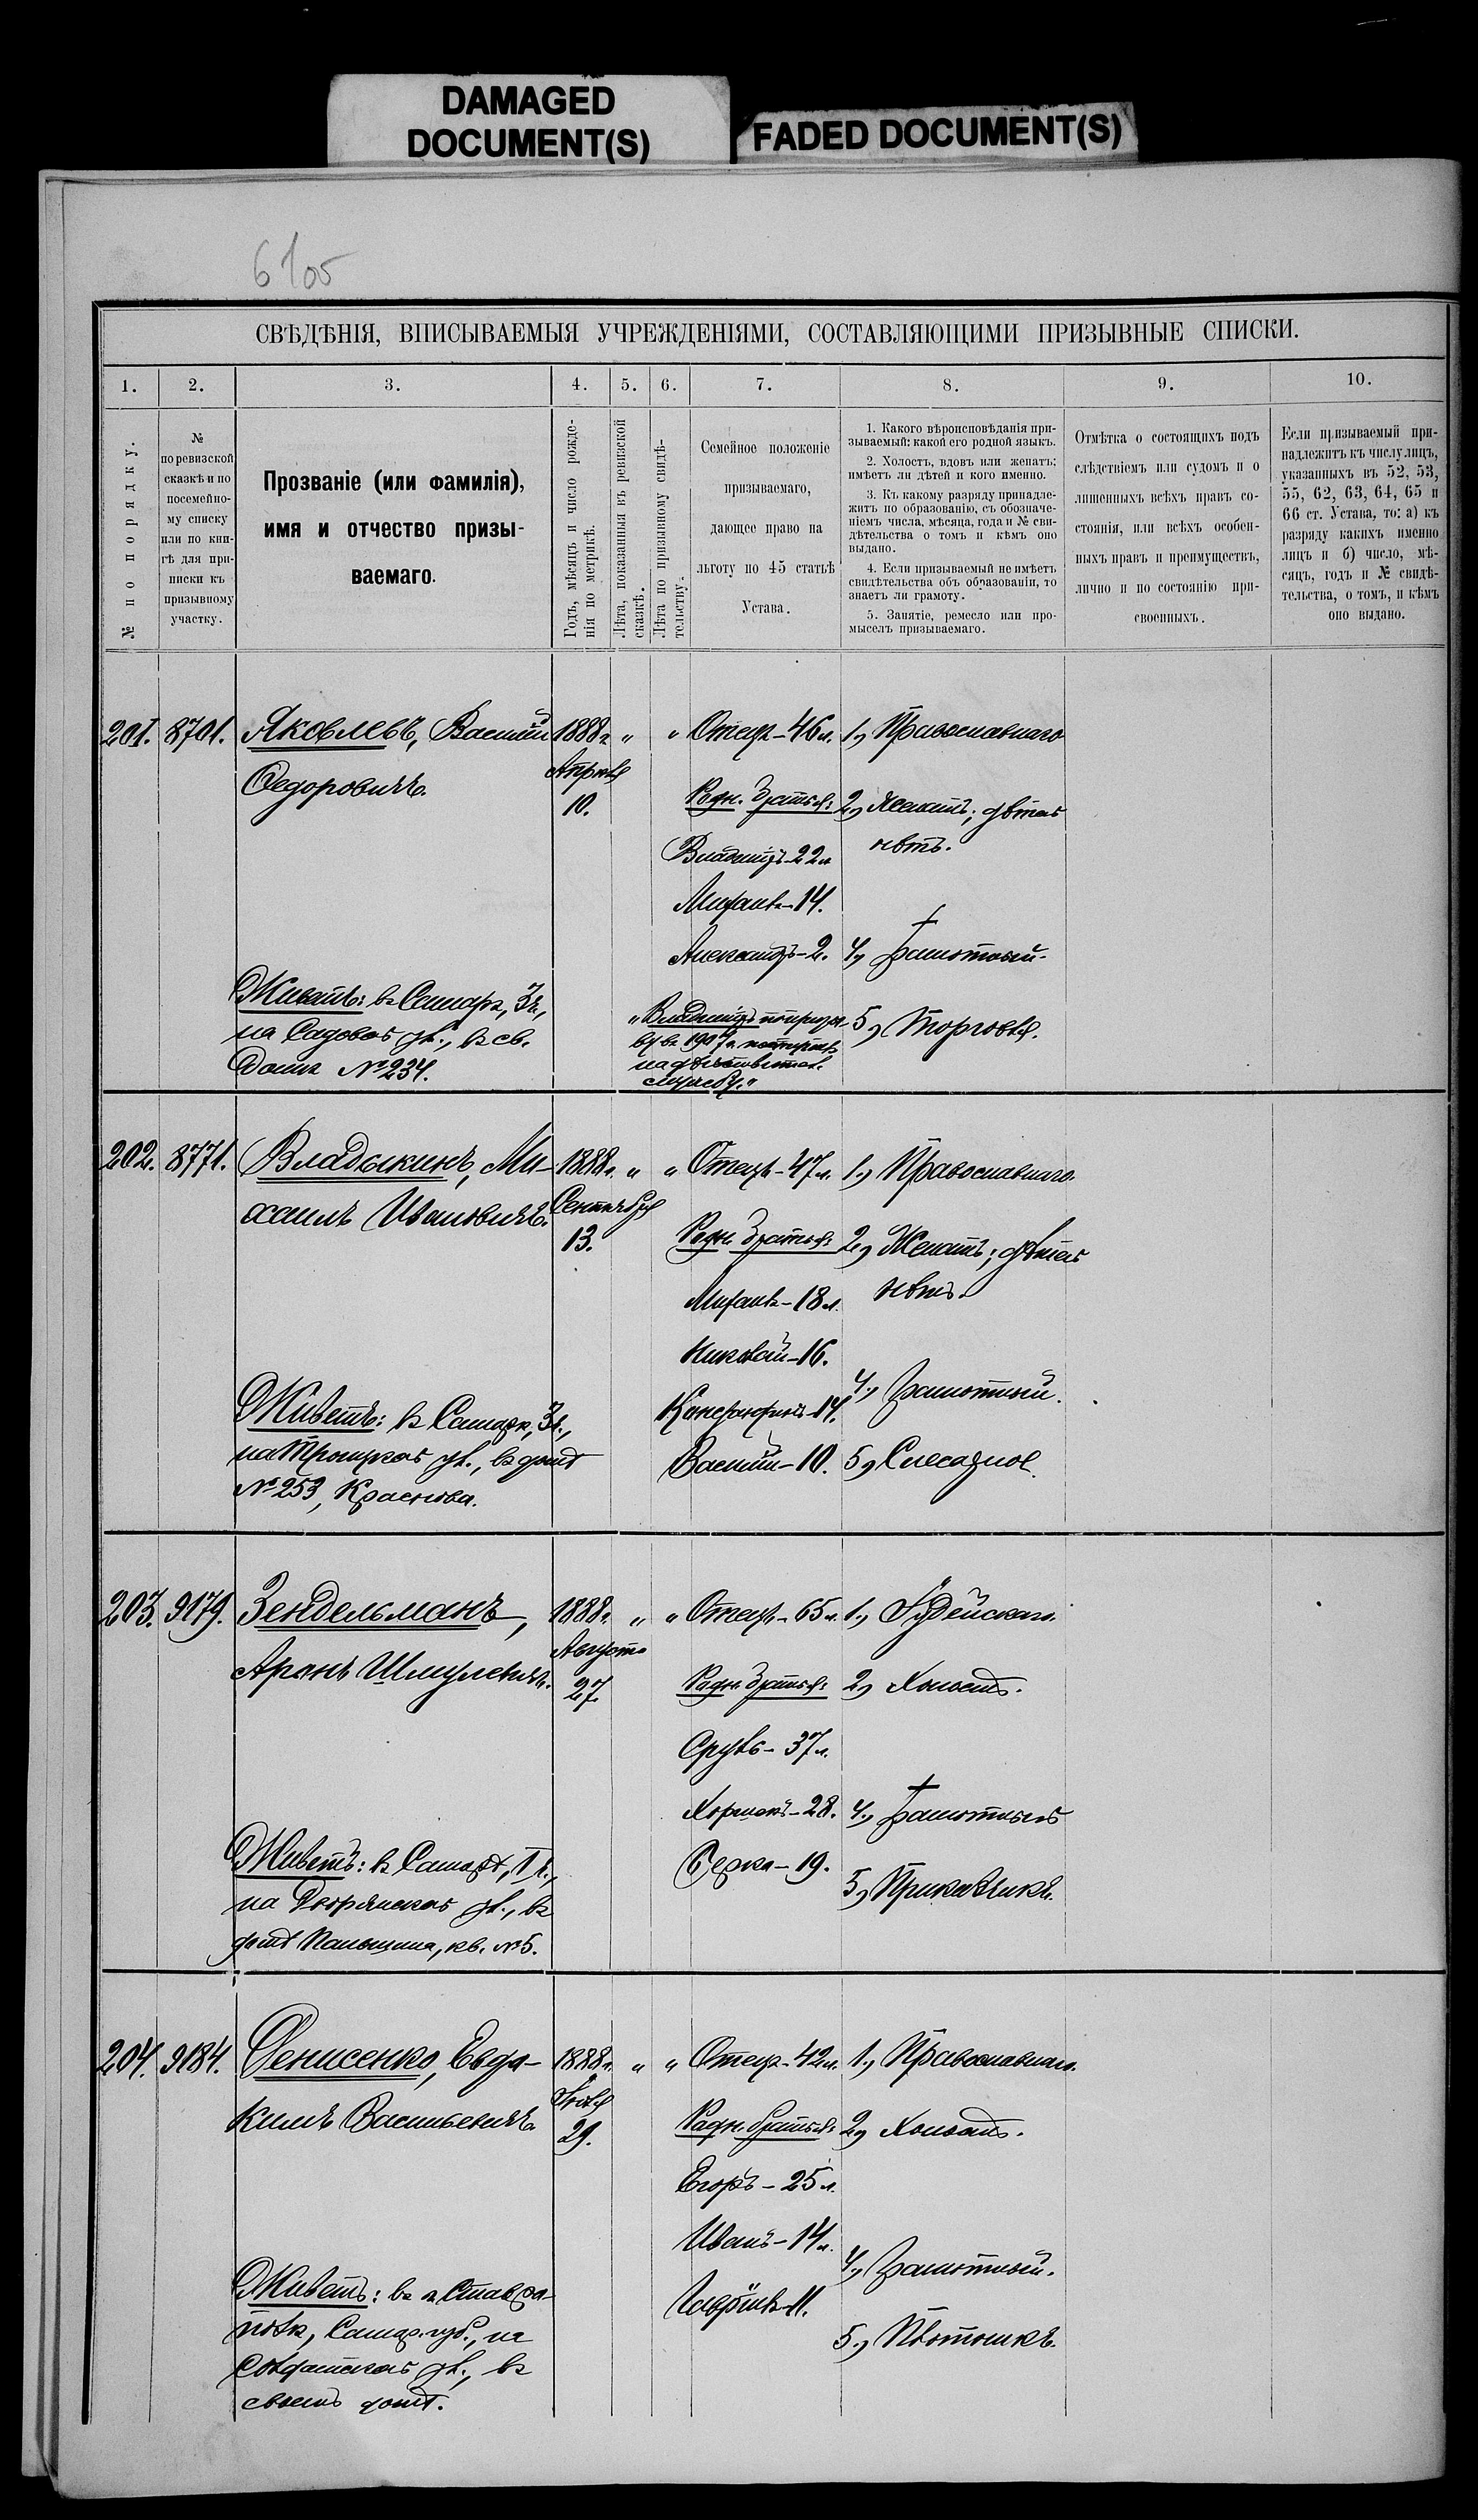 DAMAGED
DOCUMENT(S)
FADED DOCUMENT(S)
6105
СВѢДѢНІЯ, ВПИСЫВАЕМЫЯ УЧРЕЖДЕНІЯМИ, СОСТАВЛЯЮЩИМИ ПРИЗЫВНЫЕ СПИСКИ.
1. 2. 3. 4. 5. 6. 7. 8. 9. 10.
№ по порядку.
№
по ревизской
сказкѣ и по
посемейно-
му списку
или по кни-
гѣ для при-
писки къ
призывному
участку.
Прозваніе (или фамилія),
имя и отчество призы-
ваемаго.
Годъ, мѣсяцъ и число рожде-
нія по метрикѣ.
Лѣта, показанныя въ ревизской
сказкѣ.
Лѣта по призывному свидѣ-
тельству.
Семейное положеніе
призываемаго,
дающее право на
льготу по 45 статьѣ
Устава.
1. Какого вѣроисповѣданія при-
зываемый: какой его родной языкъ.
2. Холостъ, вдовъ или женатъ;
имѣетъ ли дѣтей и кого именно.
3. Къ какому разряду принадле-
житъ по образованію, съ обозначе-
ніемъ числа, мѣсяца, года и № сви-
дѣтельства о томъ и кѣмъ оно
выдано.
4. Если призываемый не имѣетъ
свидѣтельства объ образованіи, то
знаетъ ли грамоту.
5. Занятіе, ремесло или про-
мыселъ призываемаго.
Отмѣтка о состоящихъ подъ
слѣдствіемъ или судомъ и о
лишенныхъ всѣхъ правъ со-
стоянія, или всѣхъ особен-
ныхъ правъ и преимуществъ,
лично и по состоянію при-
своенныхъ.
Если призываемый при-
надлежитъ къ числу лицъ,
указанныхъ въ 52, 53,
55, 62, 63, 64, 65 и
66 ст. Устава, то: а) къ
разряду какихъ именно
лицъ и б) число, мѣ-
сяцъ, годъ и № свидѣ-
тельства, о томъ, и кѣмъ
оно выдано.
201. 8701. Яковлевъ, Василій
Ѳедоровичъ.
Живетъ: въ Самарѣ, 3 ч.,
на Садовой ул., въ св.
домѣ № 234.
1888 г.
Апрѣля
10.
" "
Отецъ - 46 л.
Родн. братья:
Владиміръ - 22 л.
Михаилъ - 14.
Александръ - 2.
"Владиміръ по призы-
ву въ 1907 г. поступилъ
на дѣйствител.
службу."
1, Православнаго
2, Женатъ; дѣтей
нѣтъ.
4, Грамотный.
5, Торговля.
202. 8771. Владыкинъ, Ми-
хаилъ Ивановичъ.
Живетъ: въ Самарѣ, 3 ч.,
на Троицкой ул., въ домѣ
№ 253, Краснова.
1888 г.
Сентября
13.
" "
Отецъ - 47 л.
Родн. братья:
Михаилъ - 18 л.
Николай - 16.
14.
Василій - 10.
1, Православнаго.
2, Женатъ; дѣтей
нѣтъ.
4, Грамотный.
5, Слесарное.
203. 9179. Зендельманъ,
Аронъ Шмулевичъ.
Живетъ: въ Самарѣ, 1 ч.,
на Дворянской ул., въ
домѣ кв. № 5.
1888 г.
Августа
27.
" "
Отецъ - 65 л.
Родн. братья:
Сруль - 37 л.
28.
Берка - 19.
1, Іудейскаго.
2, Холостъ.
4, Грамотный
5, Прикащикъ.
204. 9184. Денисенко, Евдо-
кимъ Васильевичъ.
Живетъ: въ г. Ставро-
полѣ, Самар. губ., на
Солдатской ул., въ
своемъ домѣ.
1888 г.
Іюля
29.
" "
Отецъ - 42 л.
Родн. братья:
Егоръ - 25 л.
Иванъ - 14 л.
Гавріилъ - 11.
1, Православнаго.
2, Холостъ.
4, Грамотный.
5, Плотникъ.